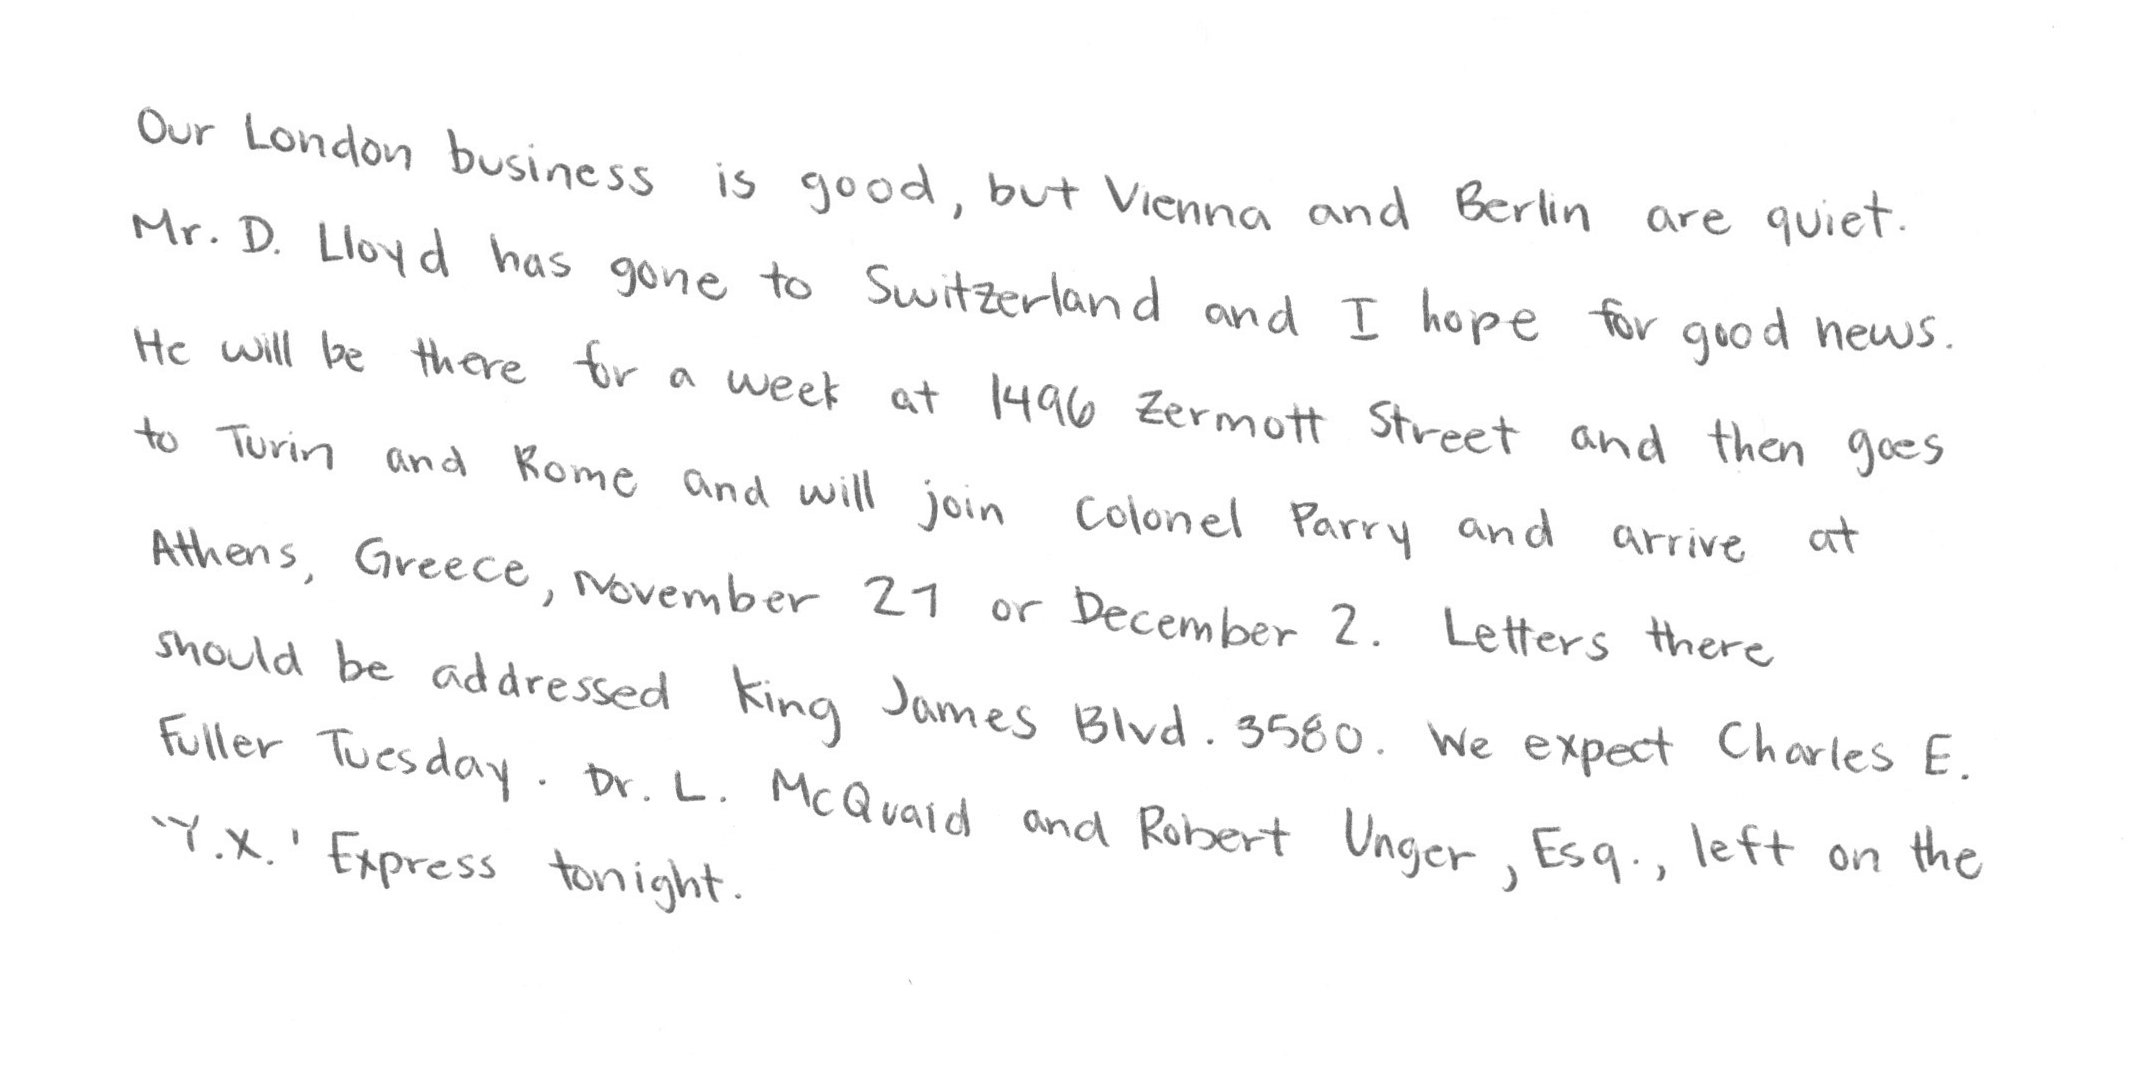 Our London business is good, but Vienna and Berlin are quiet.
Mr. D. Lloyd has gone to Switzerland and I hope for good news.
He will be there for a week at 1496 Zermott Street and then goes
to Turin and Rome and will join Colonel Parry and arrive at
Athens, Greece, November 27 or December 2. Letters there
should be addressed King James Blvd. 3580. We expect Charles E.
Fuller Tuesday. Dr. L. McQuaid and Robert Unger, Esq., left on the
'Y.X.' Express tonight.